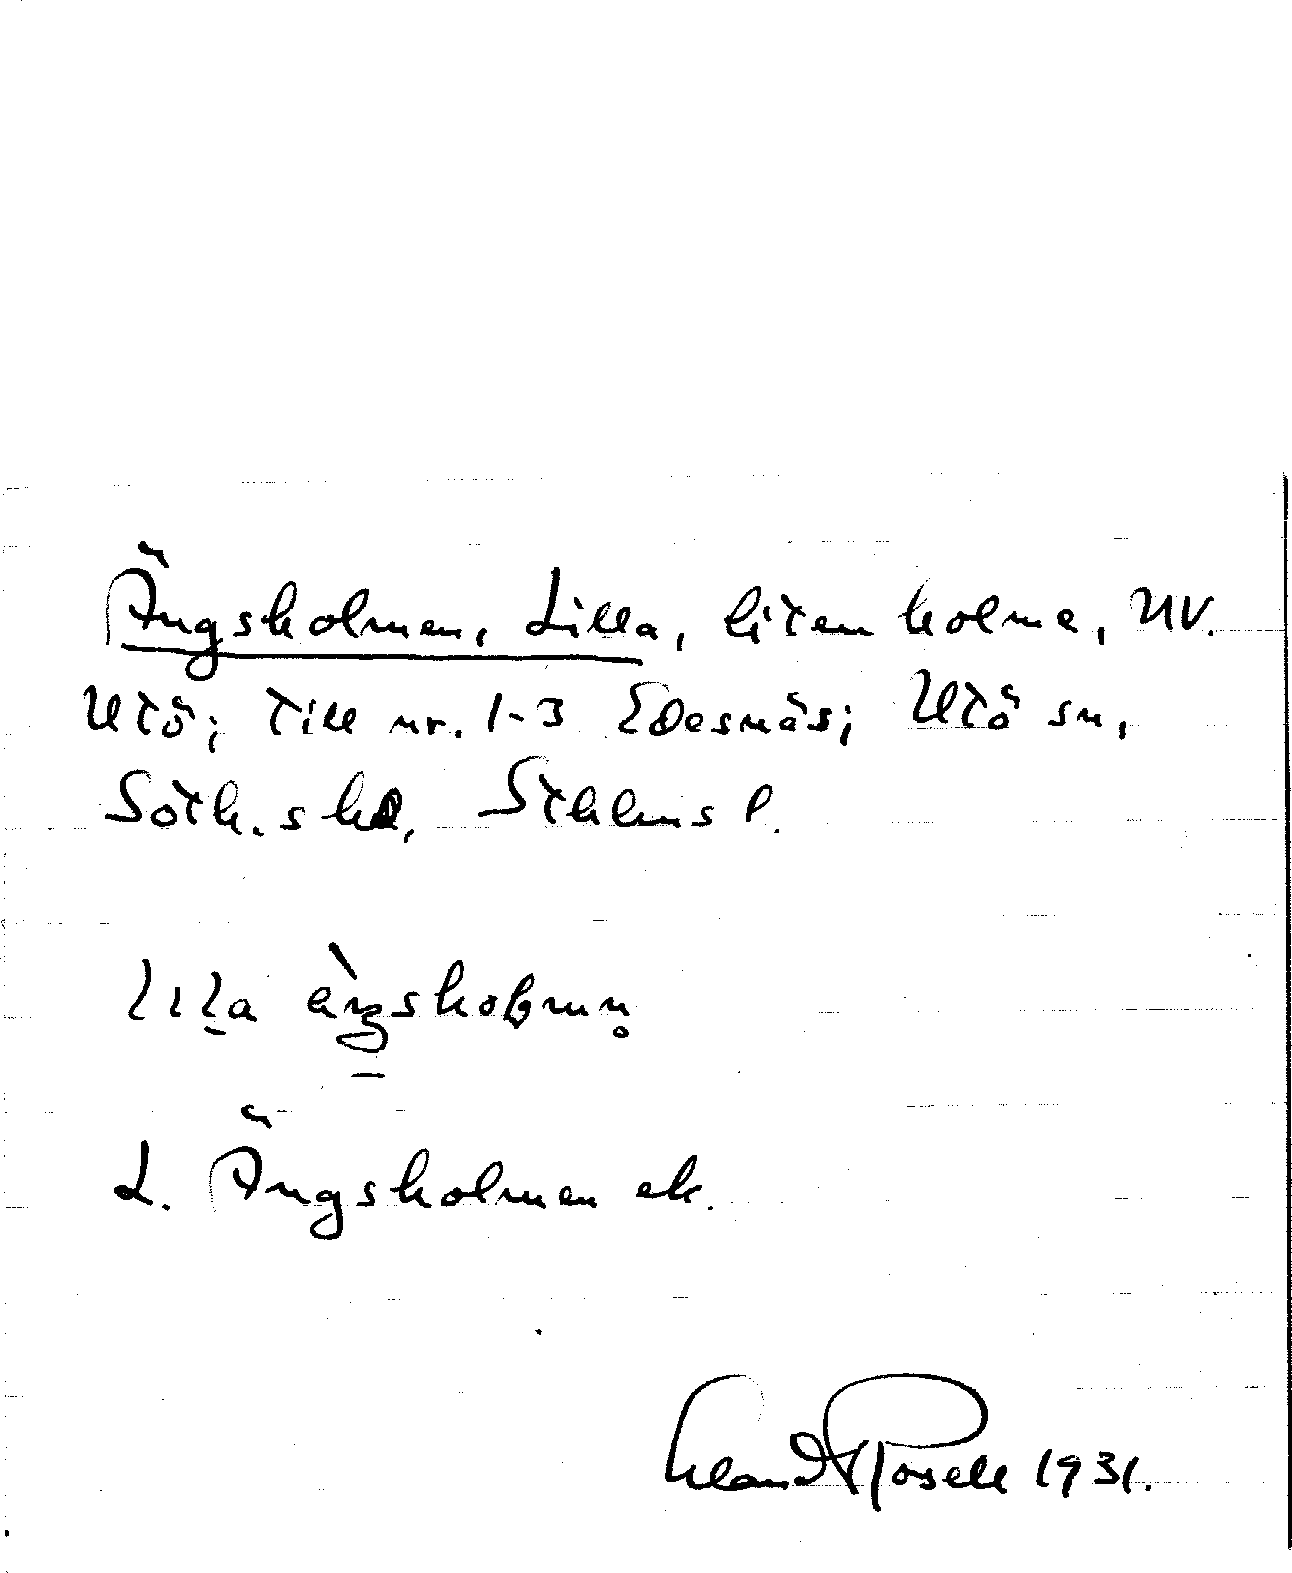 Ängsholmen, Lilla, liten holme, NV.
Utö; till nr. 1-3 Edesnäs; Utö sn,
Soth. skd, Sthlms l.
lıl̠a ängshoɽmn̥
L. Ängsholmen ek.
Rosell 1931.